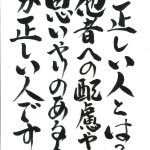 正しい人とは
他者への配慮や
思いやりのある
が正しい人です